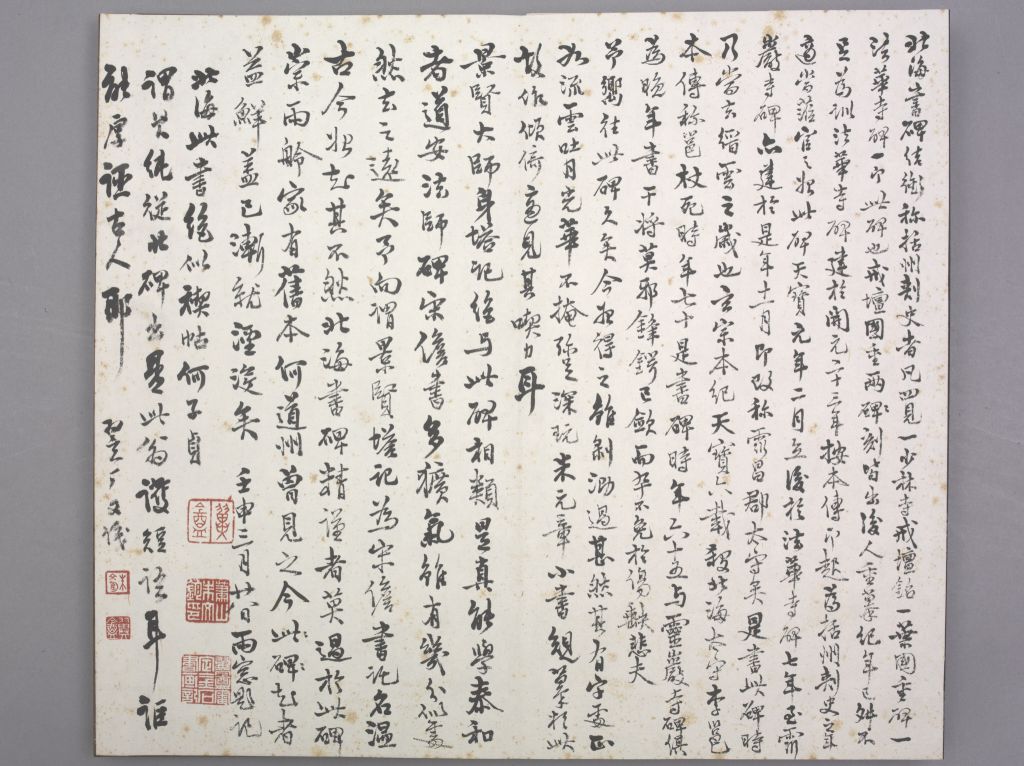 北海書碑結銜称括州刺史者凡四見一少林寺戒壇銘一葉國重碑一
法華寺碑一即此碑也戒壇國重兩碑刻皆出後人重摹紀年已舛不
足為訓法華寺碑建於開元二十三年按本傳即起為括州刺史之年
適當蒞官之始此碑天寶元年二月立後於法華寺碑七年至靈
巖寺碑亦建於是年十一月即改称靈昌郡太守矣是書此碑時
乃當去縉雲之歲也玄宗本紀天寶六載殺北海太守李邕
本傳称邕杖死時年七十是書碑時年六十五與靈巖寺碑俱
為晚年書干将莫邪鋒鍔已斂而卒不免於傷缺悲夫
予嚮往此碑久矣今始得之雖剥泐過甚然其有字處正
如流雲吐月光華不掩弥足深玩米元章小書規摹於此
故作傾俯適見其喫力耳
景賢大師身塔記絶与此碑相類是真能學泰和
者道安法師碑宋儋書多獷氣雖有幾分似處
然去之遠矣予向謂景賢塔記為宋儋書記名温
古今始知其不然北海書碑精謹者莫過於此碑
崇雨舲家有舊本何道州曾見之今此碑知者
益鮮蓋已漸就湮没矣 壬申三月廿八日雨窓題記
北海此書絶似禊帖何子貞
謂公純從北碑出是此翁護短語耳証
能厚誣古人耶 翌厂又識